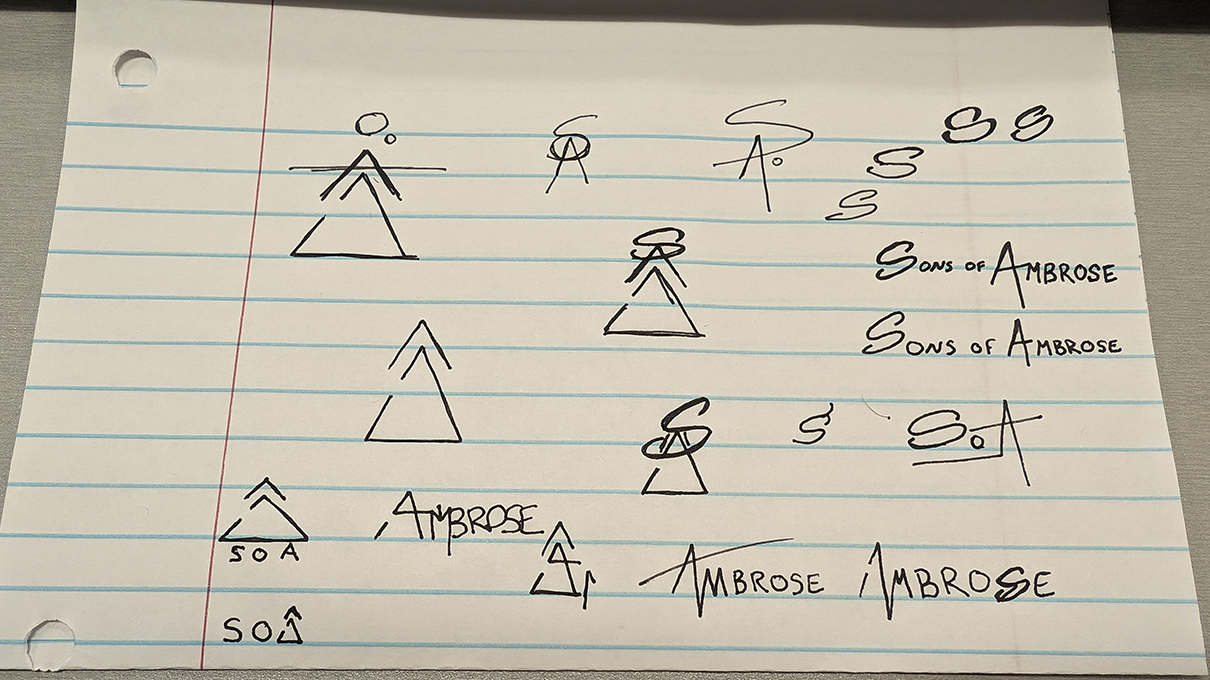 S A
S A o
S S
S
S
S
SONS OF AMBROSE
SONS OF AMBROSE
S
S
S o A
S O A
AMBROSE
A
AMBROSE
AMBROSE
S O A